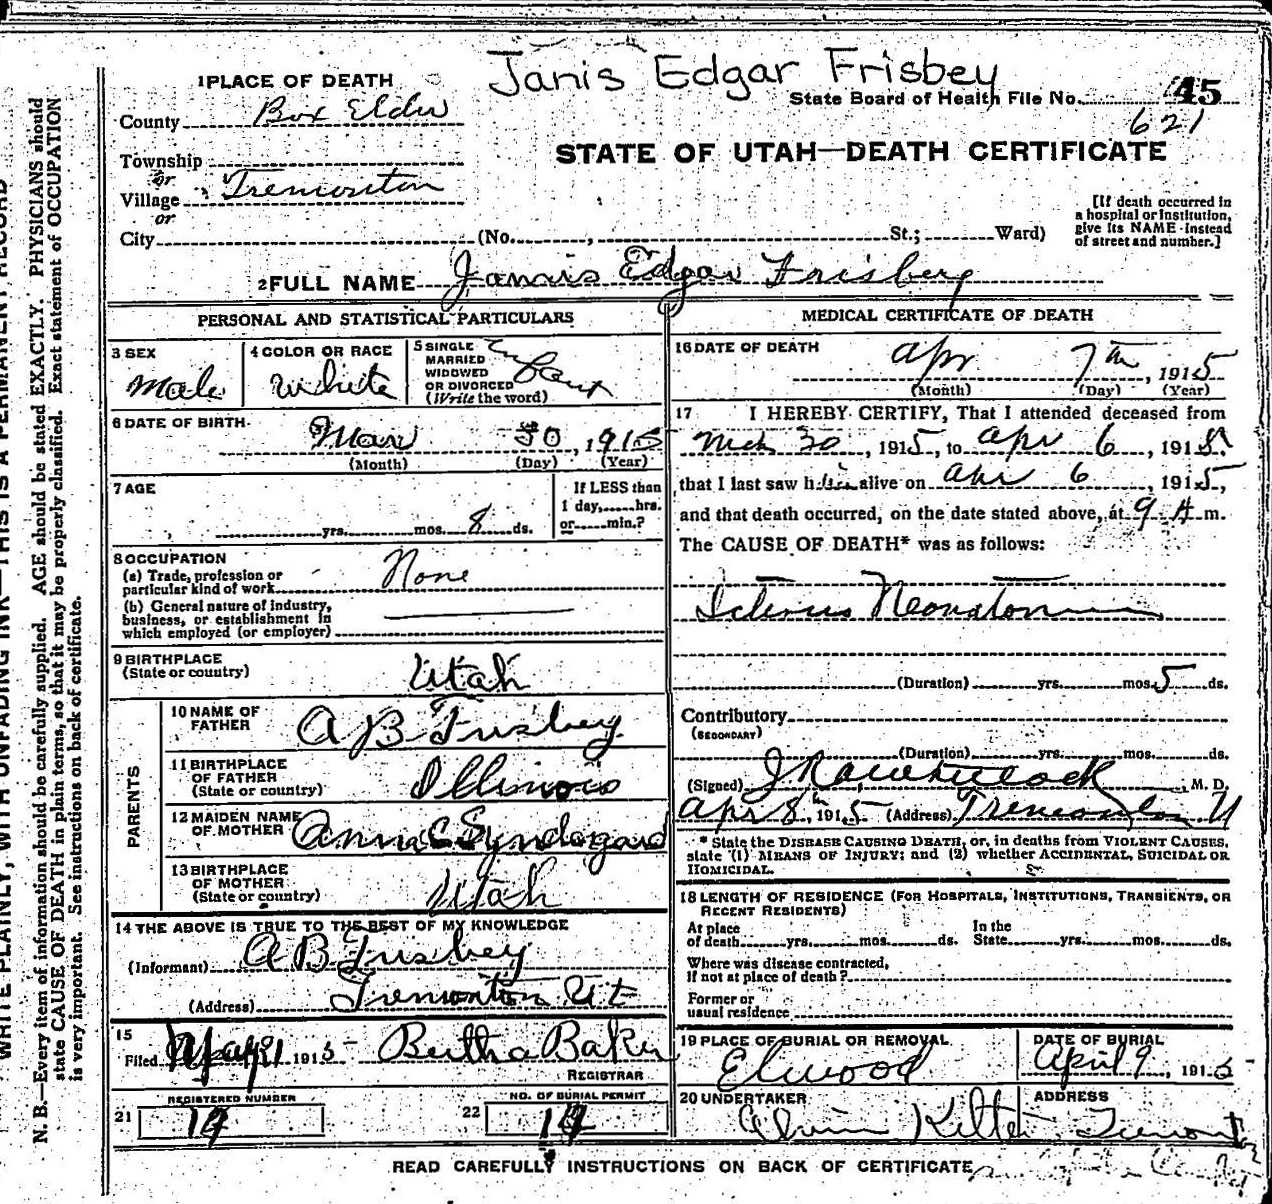 Janis Edgar Frisbey
1 PLACE OF DEATH
State Board of Health File No. 45
621
County Box Elder
STATE OF UTAH—DEATH CERTIFICATE
Township
or
Village Tremonton
or
City (No. , St.; Ward)
[If death occurred in
a hospital or institution,
give its NAME instead
of street and number.]
2 FULL NAME Jannis Edgar Frisbery
PERSONAL AND STATISTICAL PARTICULARS
3 SEX
Male
4 COLOR OR RACE
White
5 SINGLE
MARRIED
WIDOWED
OR DIVORCED
(Write the word)
Infant
6 DATE OF BIRTH
Mar 30, 1915
(Month) (Day) (Year)
7 AGE
yrs. mos. 8 ds.
If LESS than
1 day, hrs.
or min.?
8 OCCUPATION
(a) Trade, profession or
particular kind of work None
(b) General nature of industry,
business, or establishment in
which employed (or employer)
9 BIRTHPLACE
(State or country) Utah
PARENTS
10 NAME OF
FATHER A B Frisbey
11 BIRTHPLACE
OF FATHER
(State or country) Illinois
12 MAIDEN NAME
OF MOTHER Anna C Syndegard
13 BIRTHPLACE
OF MOTHER
(State or country) Utah
14 THE ABOVE IS TRUE TO THE BEST OF MY KNOWLEDGE
(Informant) A B Frisbey
(Address) Tremonton Ut
15
Filed 1915 Bertha Baker
REGISTRAR
REGISTERED NUMBER
21 14
NO. OF BURIAL PERMIT
22 14
MEDICAL CERTIFICATE OF DEATH
16 DATE OF DEATH
Apr 7th, 1915
(Month) (Day) (Year)
17 I HEREBY CERTIFY, That I attended deceased from
Mch 30, 1915, to Apr 6, 1915,
that I last saw him alive on Apr 6, 1915,
and that death occurred, on the date stated above, at 9 A m.
The CAUSE OF DEATH* was as follows:
Icterus Neonatorum
(Duration) yrs. mos. 5 ds.
Contributory
(SECONDARY)
(Duration) yrs. mos. ds.
(Signed) M. D.
Apr 8th, 1915 (Address) Tremonton U
* State the DISEASE CAUSING DEATH, or, in deaths from VIOLENT CAUSES,
state (1) MEANS OF INJURY; and (2) whether ACCIDENTAL, SUICIDAL OR
HOMICIDAL.
18 LENGTH OF RESIDENCE (FOR HOSPITALS, INSTITUTIONS, TRANSIENTS, OR
RECENT RESIDENTS)
At place In the
of death yrs. mos. ds. State yrs. mos. ds.
Where was disease contracted,
If not at place of death?
Former or
usual residence
19 PLACE OF BURIAL OR REMOVAL
Elwood
DATE OF BURIAL
April 9, 1915
20 UNDERTAKER
ADDRESS
READ CAREFULLY INSTRUCTIONS ON BACK OF CERTIFICATE
WRITE PLAINLY, WITH UNFADING INK—THIS IS A PERMANENT RECORD
N. B.—Every item of information should be carefully supplied. AGE should be stated EXACTLY. PHYSICIANS should
state CAUSE OF DEATH in plain terms, so that it may be properly classified. Exact statement of OCCUPATION
is very important. See instructions on back of certificate.